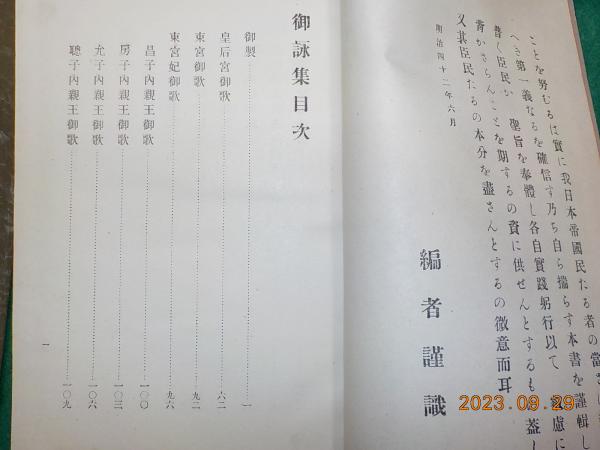 ことを努むるは實に我日本帝國民たる者の當さに
べき第一義なるを確信す乃ち自ら揣らす本書を謹輯し
普し臣民か 聖旨を奉體し各自實踐躬行以て 慮に
背かさらんことを期するの資に供せんとするもの蓋し
又其臣民たるの本分を盡さんとするの微意而耳
明治四十二年六月
編者謹識
御詠集目次
御製 一
皇后宮御歌 六二
東宮御歌 九二
東宮妃御歌 九六
昌子內親王御歌 一〇〇
房子內親王御歌 一〇三
允子內親王御歌 一〇六
聰子內親王御歌 一〇九
一
2023.09.29